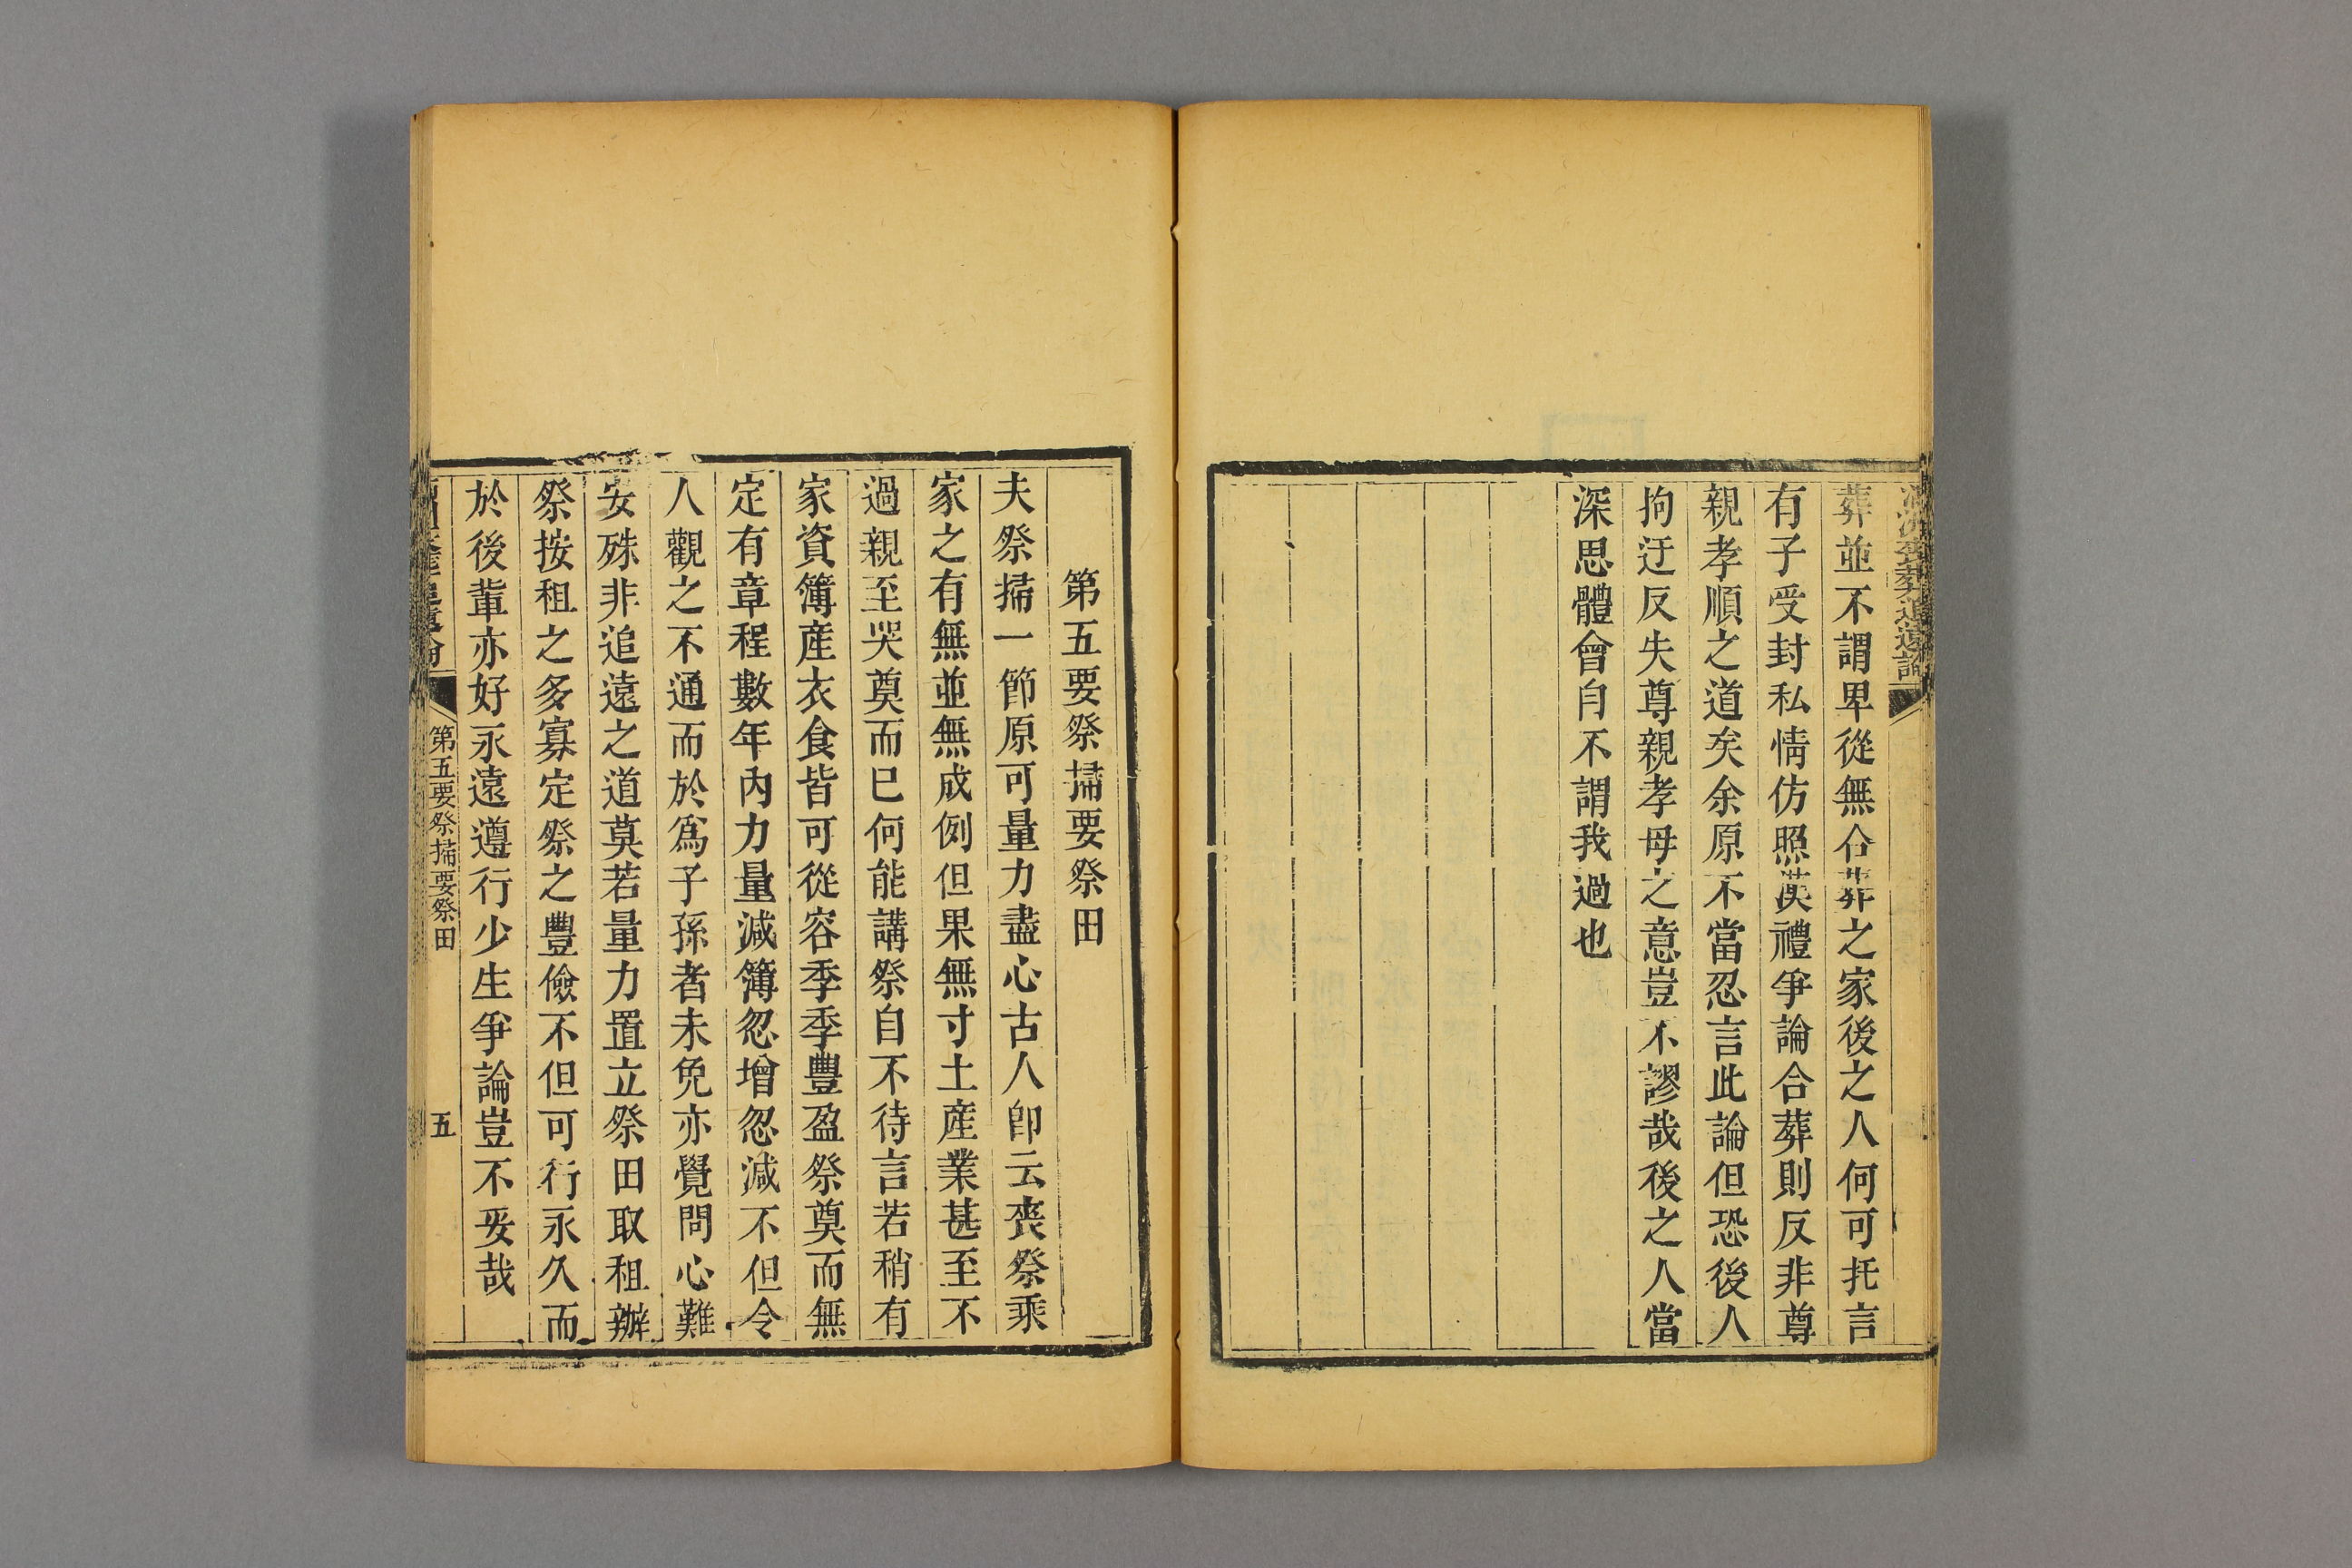 葬並不謂卑從無合葬之家後之人何可托言
有子受封私情仿照漢禮爭論合葬則反非尊
親孝順之道矣余原不當忍言此論但恐後人
拘迂反失尊親孝母之意豈不謬哉後之人當
深思體會自不謂我過也
第五要祭掃要祭田
夫祭掃一節原可量力盡心古人卽云喪祭乘
家之有無並無成例但果無寸土產業甚至不
過親至哭奠而已何能講祭自不待言若稍有
家資簿產衣食皆可從容季季豐盈祭奠而無
定有章程數年內力量減簿忽增忽減不但令
人觀之不通而於爲子孫者未免亦覺問心難
安殊非追遠之道莫若量力置立祭田取租辦
祭按租之多寡定祭之豐儉不但可行永久而
於後輩亦好永遠遵行少生爭論豈不妥哉
第五要祭掃要祭田
五